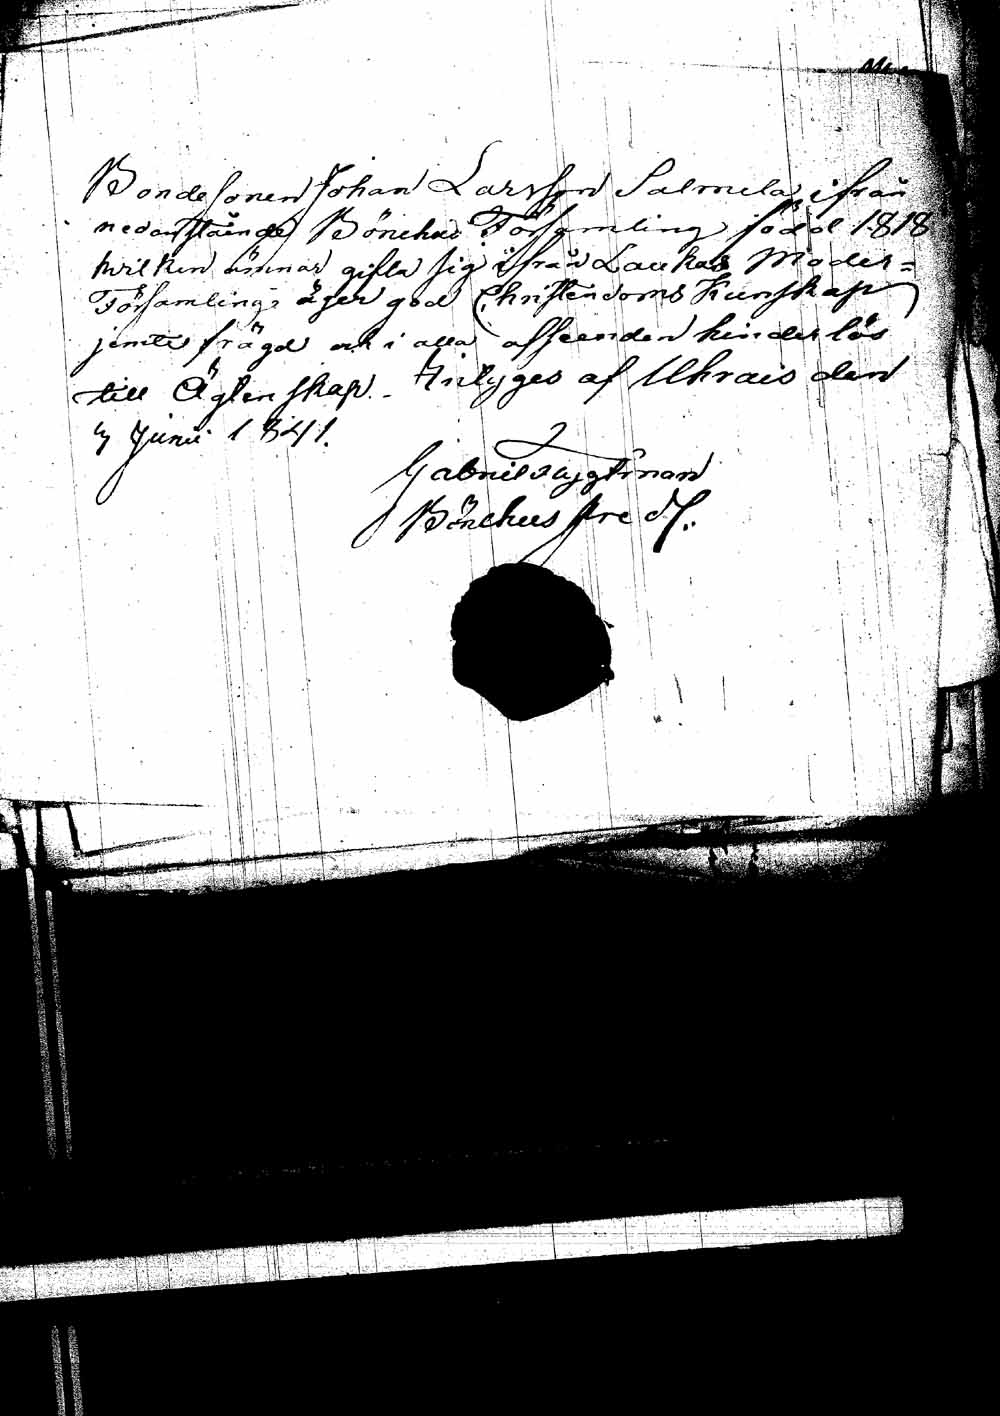 Bondesonen Johan Larsson Salmela ifrån
nedanstående Bönehus Församling född 1818
hvilken ämnar gifta sig ifrån Laukas Moder=
Församling, äger god Christendoms Kunskap
jemte frägd och i alla afseenden hinderlös
till Ägtenskap. Intyges af Uhrais den
7 Junii 1841.
Gabriel
Bönehus Pred.